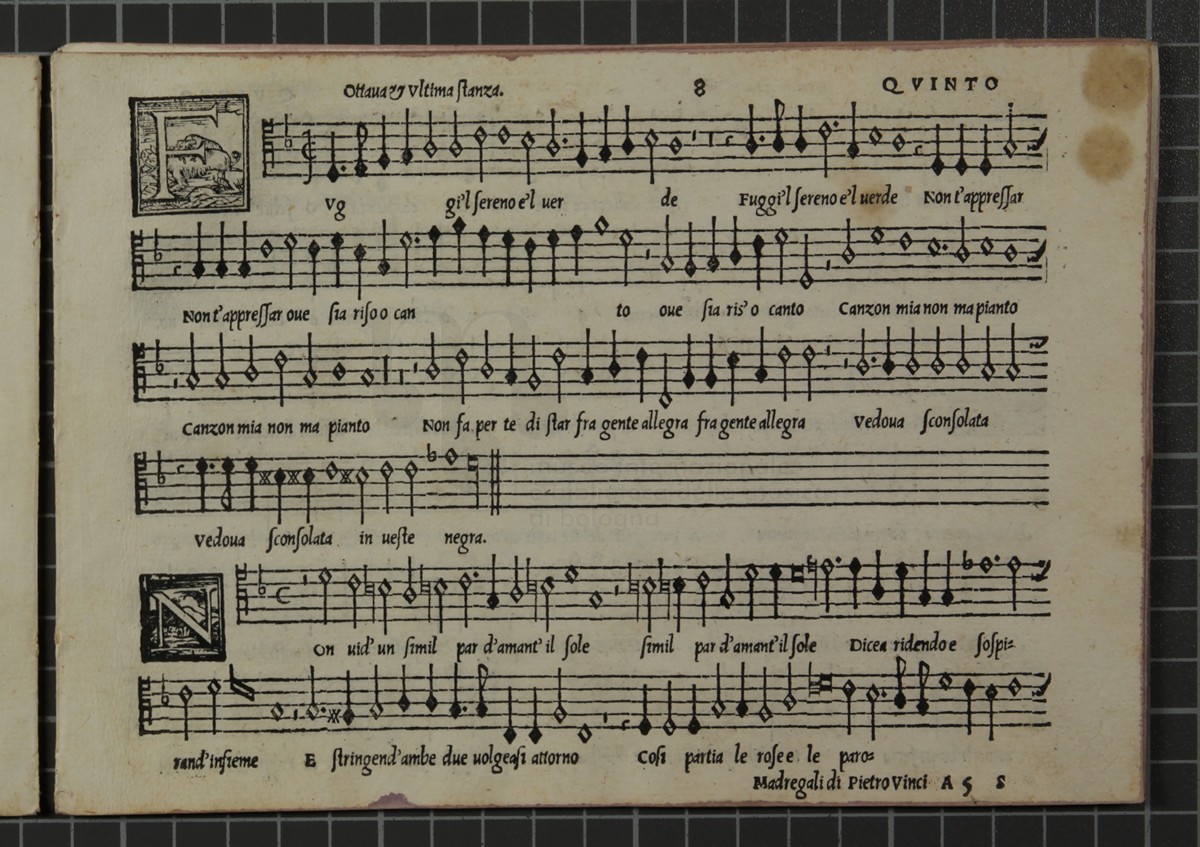 Ottaua & vltima stanza. 8 QVINTO
F
Vg gi'l sereno e'l uer de Fuggi'l sereno e'l uerde Non t'appressar
Non t'appressar oue sia riso o can to oue sia ris'o canto Canzon mia non ma pianto
Canzon mia non ma pianto Non fa per te di star fra gente allegra fra gente allegra Vedoua sconsolata
Vedoua sconsolata in ueste negra.
N
On uid'un simil par d'amant'il sole simil par d'amant'il sole Dicea ridendo e sospi=
rand'insieme E stringend'ambe due uolgeasi attorno Cosi partia le rose e le paro=
Madregali di Pietro Vinci A 5 S
di bologna